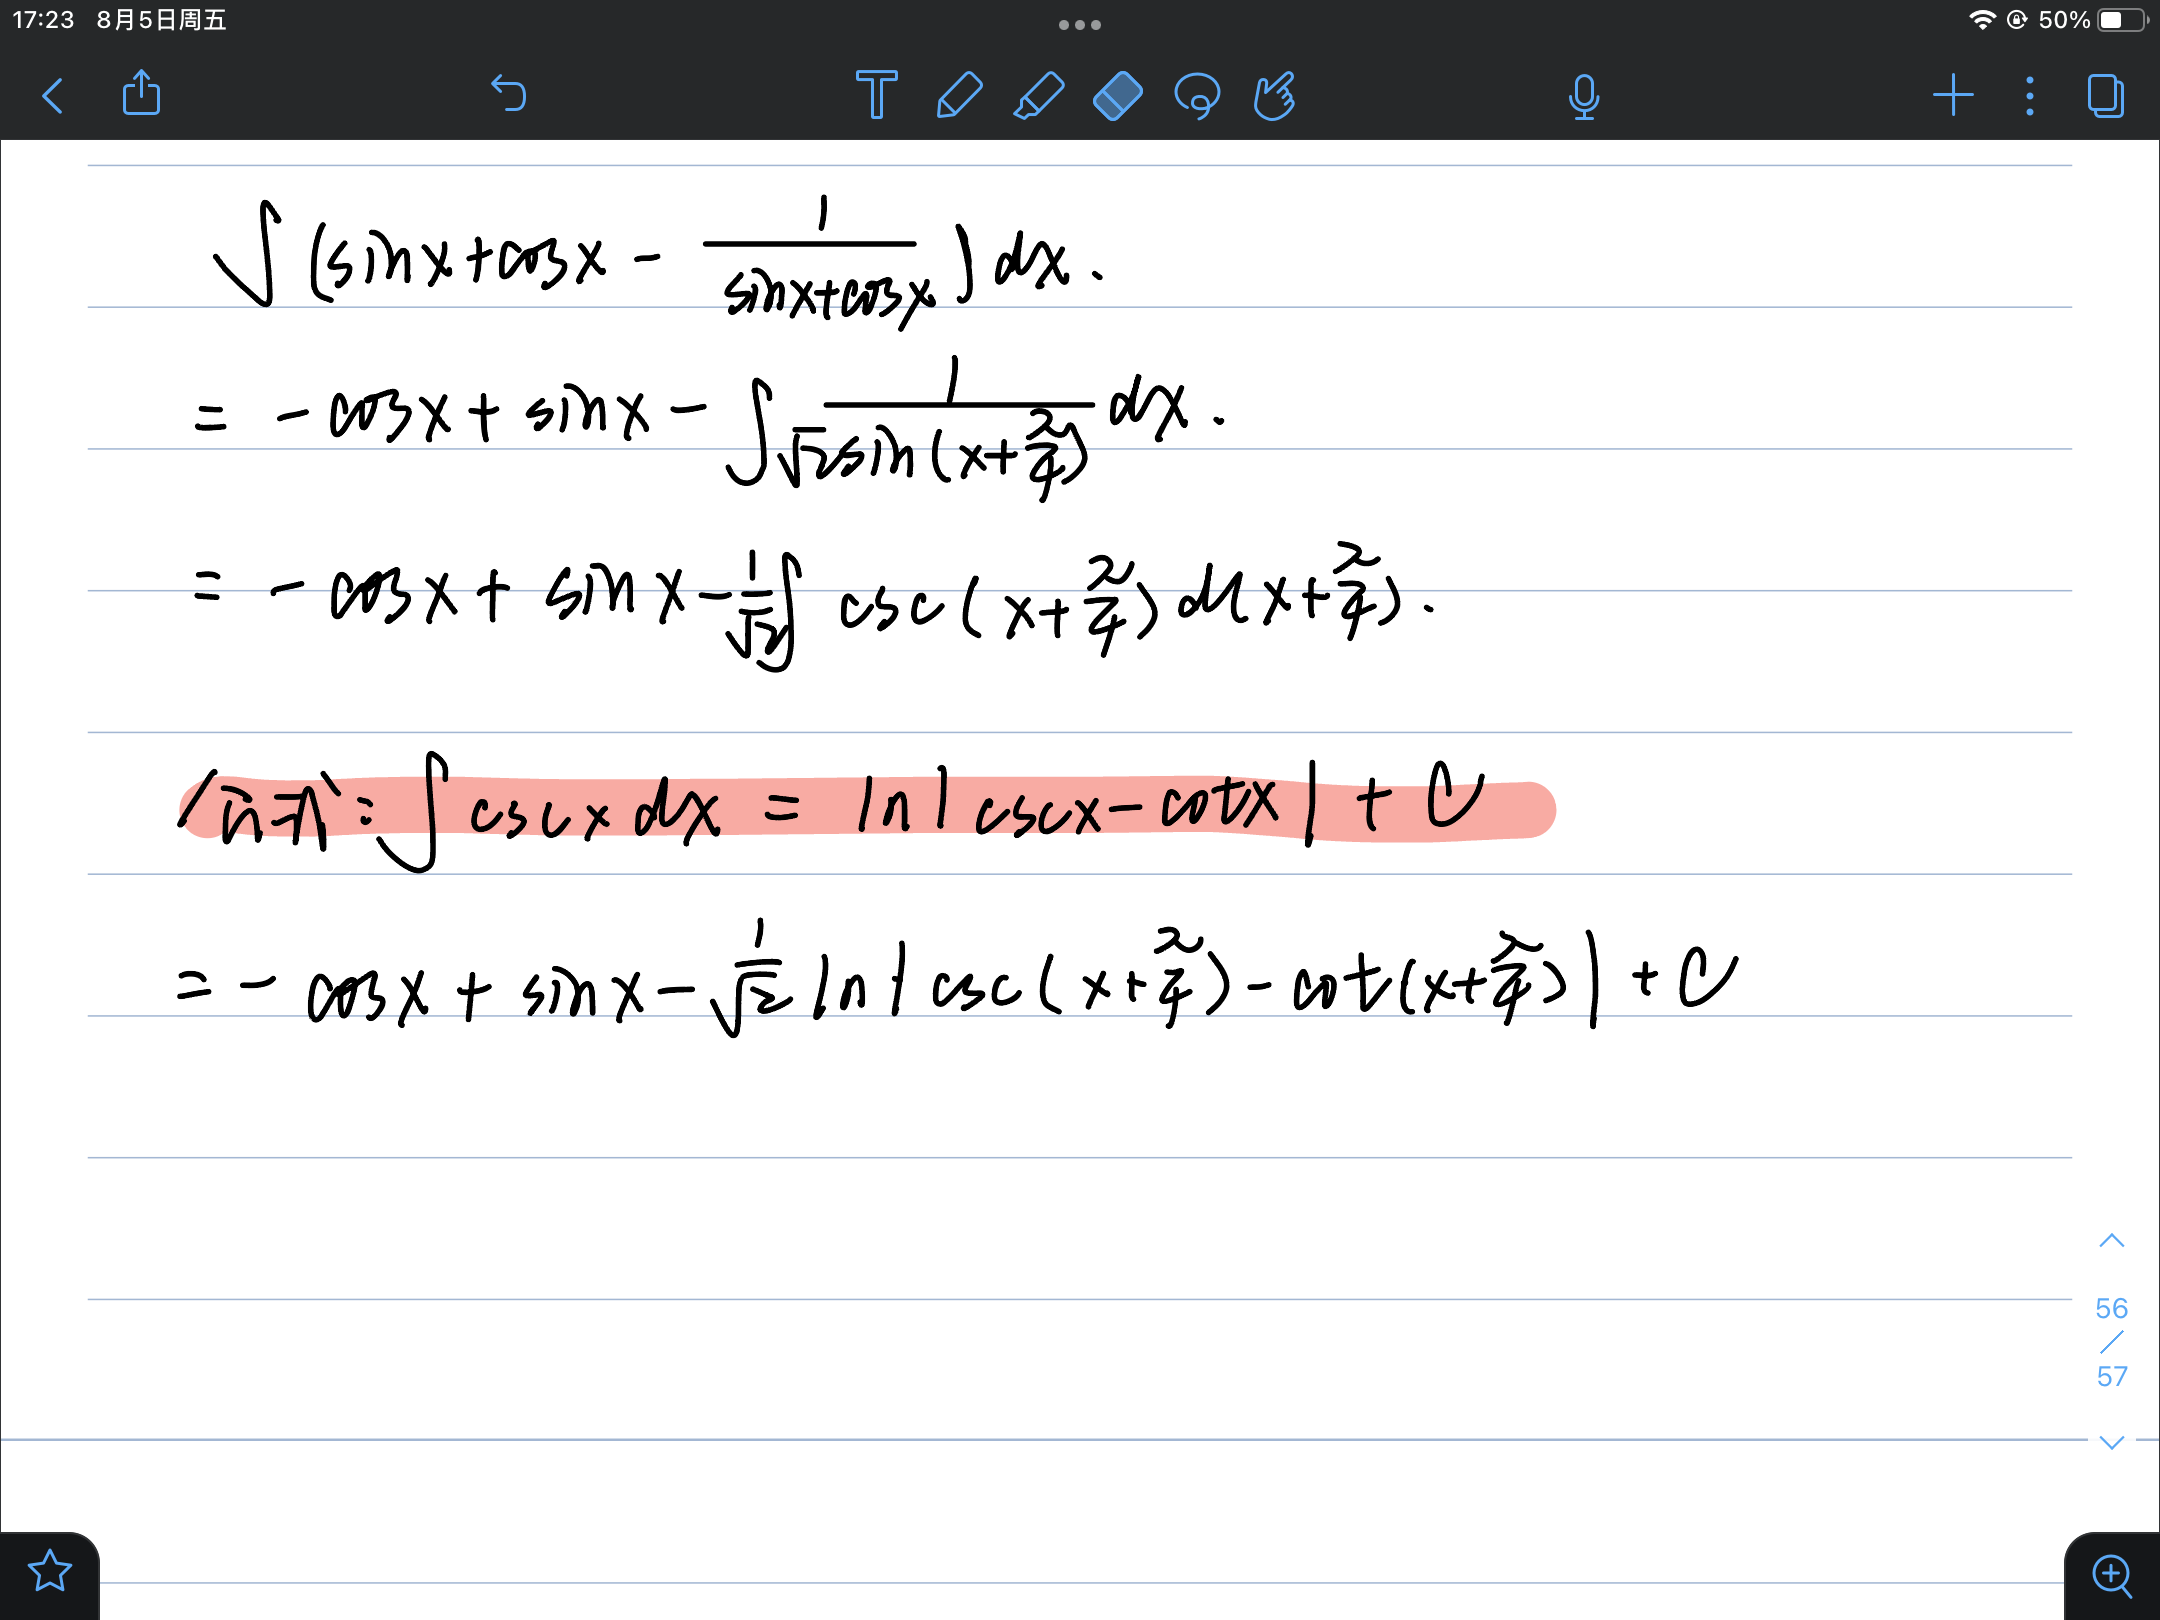 17:23 8月5日周五 50%
∫(sinx+cosx - 1/(sinx+cosx))dx.
= -cosx + sinx - ∫ 1/(√2sin(x+π/4)) dx.
= -cosx + sinx - 1/√2 ∫ csc(x+π/4)d(x+π/4).
∫cscxdx = ln|cscx-cotx| + C
= -cosx + sinx - 1/√2 ln|csc(x+π/4) - cot(x+π/4)| + C
56
/
57